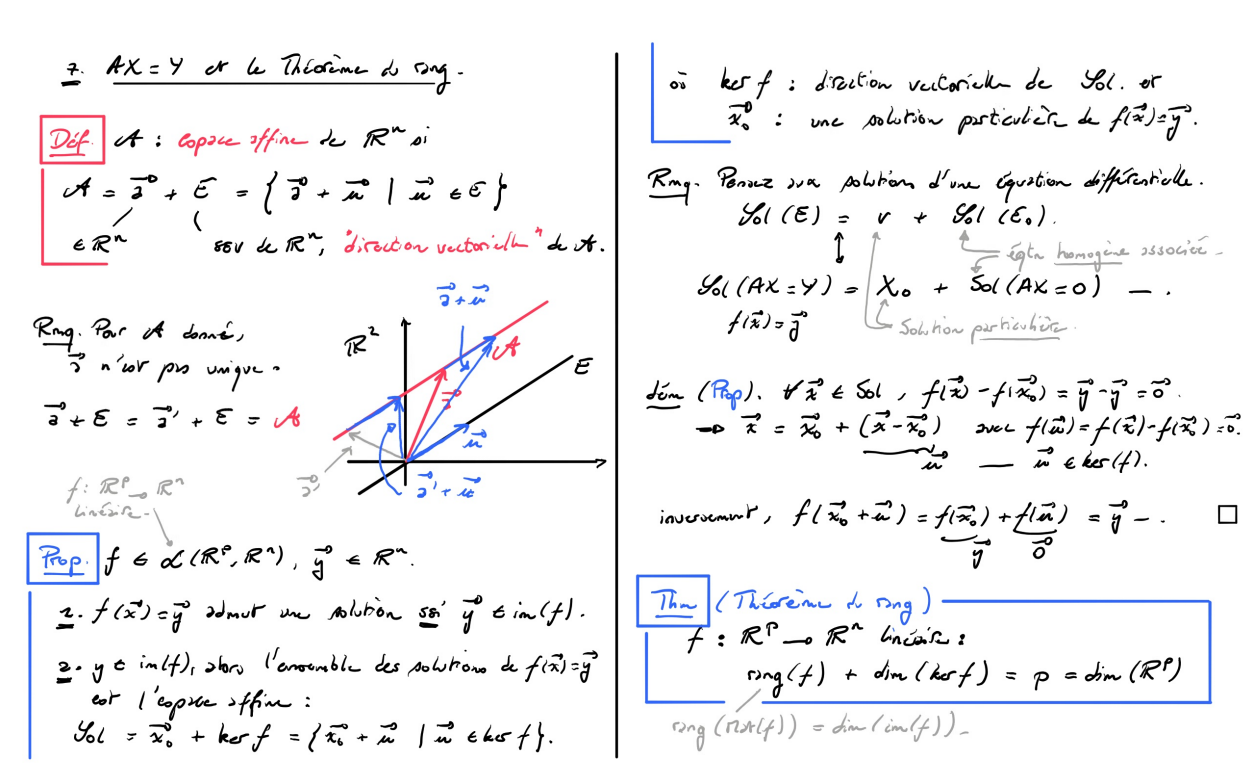 7. AX = Y et le Théorème du rang.
Déf. 𝒜 : espace affine de ℝⁿ si
𝒜 = a⃗ + E = { a⃗ + u⃗ | u⃗ ∈ E }
∈ ℝⁿ
sev de ℝⁿ, "direction vectorielle" de 𝒜.
Rmq. Pour 𝒜 donné,
a⃗ n'est pas unique.
a⃗ + E = a⃗' + E = 𝒜
ℝ²
a⃗ + u⃗
𝒜
E
a⃗
u⃗
a⃗'
a⃗' + u⃗
f : ℝᵖ → ℝⁿ
linéaire.
Prop. f ∈ ℒ(ℝᵖ, ℝⁿ), y⃗ ∈ ℝⁿ.
1. f(x⃗) = y⃗ admet une solution ssi y⃗ ∈ im(f).
2. y ∈ im(f), alors l'ensemble des solutions de f(x⃗) = y⃗
est l'espace affine :
Sol = x⃗₀ + ker f = { x⃗₀ + u⃗ | u⃗ ∈ ker f }.
où ker f : direction vectorielle de Sol. et
x⃗₀ : une solution particulière de f(x⃗) = y⃗.
Rmq. Pensez aux solutions d'une équation différentielle.
Sol (E) = v + Sol (E₀).
éqtn homogène associée.
Sol (AX = Y) = X₀ + Sol (AX = 0) — .
f(x⃗) = y⃗
Solution particulière.
dém (Prop). ∀ x⃗ ∈ Sol, f(x⃗) - f(x⃗₀) = y⃗ - y⃗ = 0⃗.
→ x⃗ = x⃗₀ + (x⃗ - x⃗₀) avec f(u⃗) = f(x⃗) - f(x⃗₀) = 0⃗.
u⃗ — u⃗ ∈ ker(f).
inversement, f(x⃗₀ + u⃗) = f(x⃗₀) + f(u⃗) = y⃗ — . □
y⃗ 0⃗
Thm (Théorème du rang)
f : ℝᵖ → ℝⁿ linéaire :
rang(f) + dim(ker f) = p = dim(ℝᵖ)
rang (Mat(f)) = dim(im(f)).